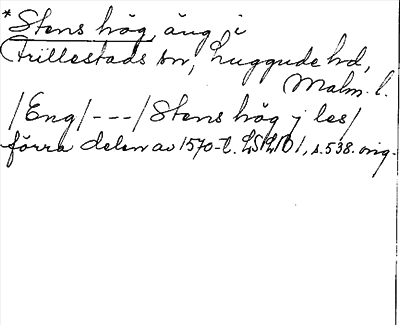 *Stens hög, äng i
Frillestads sn, Luggude hd,
Malm. l.
/Eng/---/Stens hög j les/
förra delen av 1570-t. LSPLB1, s. 538. orig.